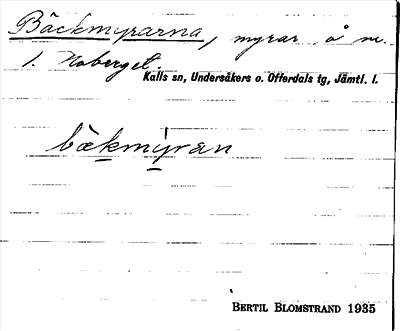 Bäckmyrarna, myrar å m.
l. Noberget.
Kalls sn, Undersåkers o. Offerdals tg, Jämtl. l.
bäkmýran
BERTIL BLOMSTRAND 1935